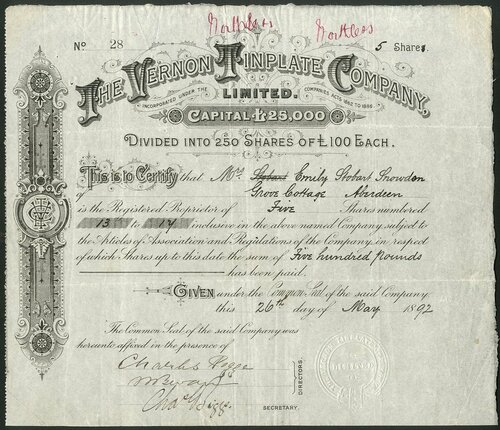 Worthless Worthless
No 28 5 Shares.
THE VERNON TINPLATE COMPANY,
INCORPORATED UNDER THE LIMITED. COMPANIES ACTS 1862 TO 1886.
CAPITAL £25,000
DIVIDED INTO 250 SHARES OF £100 EACH.
This is to Certify that Mrs Emily Stobart Snowdon
of Grove Cottage Aberdeen
is the Registered Proprietor of Five Shares numbered
13 to 17 inclusive in the above named Company, subject to
the Articles of Association and Regulations of the Company, in respect
of which Shares up to this date the sum of Five hundred pounds
has been paid.
GIVEN under the Common Seal of the said Company
this 26th day of May 1892
The Common Seal of the said Company was
hereunto affixed in the presence of
Charles
DIRECTORS.
Chas
SECRETARY.